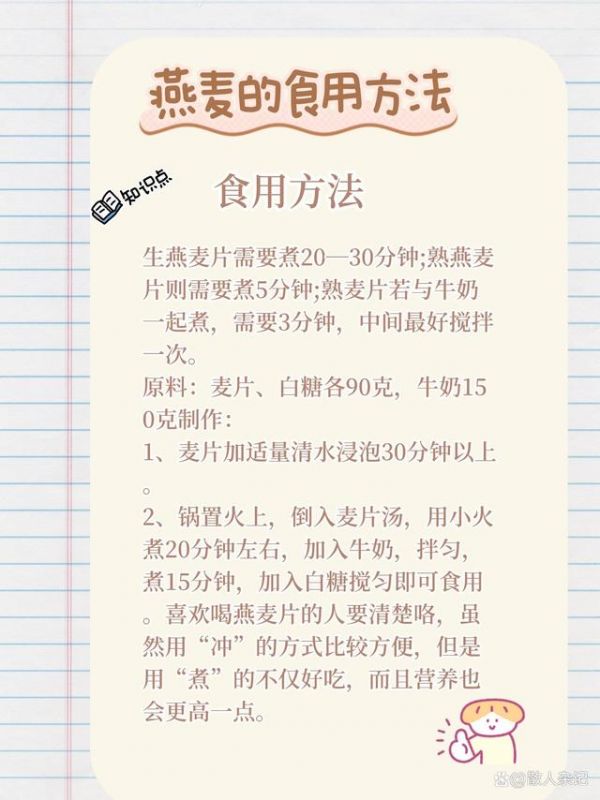 燕麦的食用方法
知识点
食用方法
生燕麦片需要煮20—30分钟;熟燕麦
片则需要煮5分钟;熟麦片若与牛奶
一起煮，需要3分钟，中间最好搅拌
一次。
原料：麦片、白糖各90克，牛奶15
0克制作：
1、麦片加适量清水浸泡30分钟以上
。
2、锅置火上，倒入麦片汤，用小火
煮20分钟左右，加入牛奶，拌匀，
煮15分钟，加入白糖搅匀即可食用
。喜欢喝燕麦片的人要清楚咯，虽
然用“冲”的方式比较方便，但是
用“煮”的不仅好吃，而且营养也
会更高一点。
@散人杂记